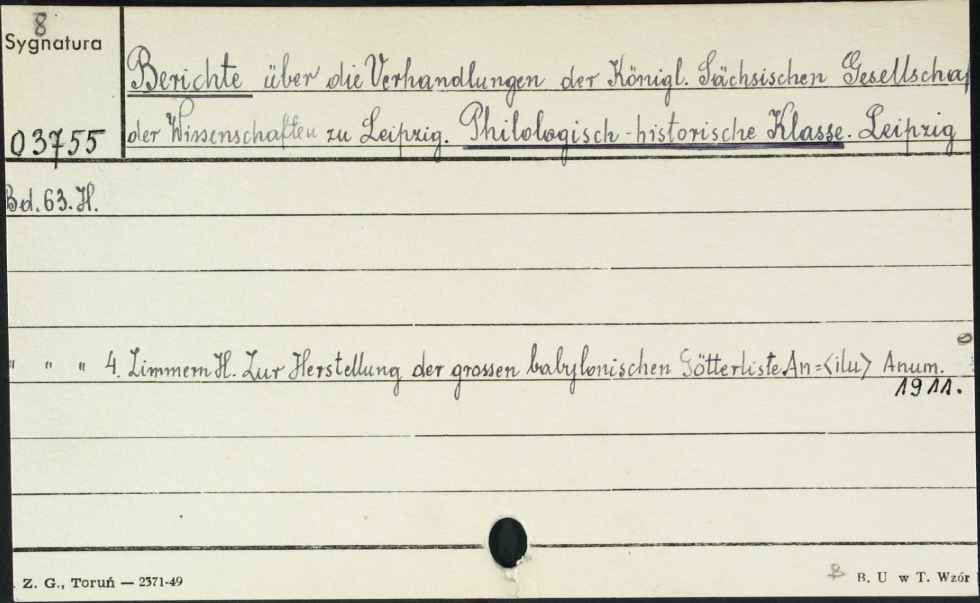 8
Sygnatura
Berichte über die Verhandlungen der Königl. Sächsischen Gesellschaf
03755 der Wissenschaften zu Leipzig. Philologisch-historische Klasse. Leipzig
Bd. 63. H.
" " " 4. Zimmern H. Zur Herstellung der grossen babylonischen Götterliste An=<ilu> Anum.
1911.
Z. G., Toruń — 2371-49
B. U w T. Wzór